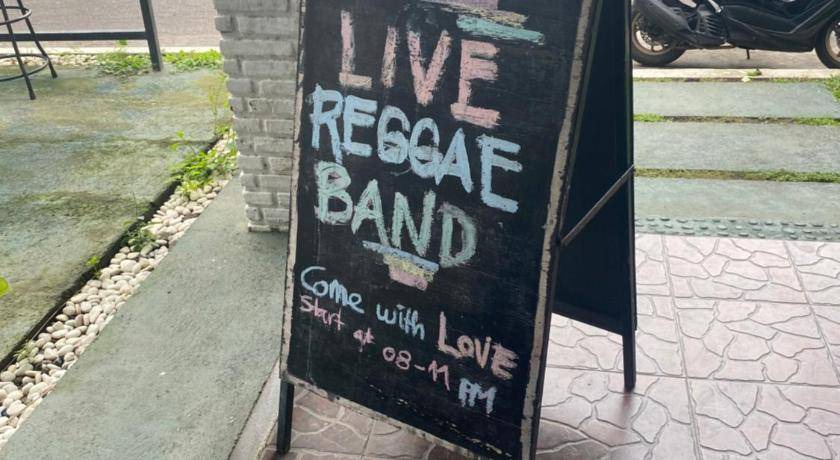 LIVE
REGGAE
BAND
Come with LOVE
Start at 08-11 PM